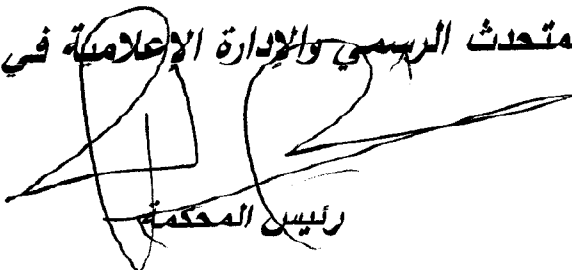 متحدث الرسمي والإدارة الإعلامية في
رئيس المحكمة